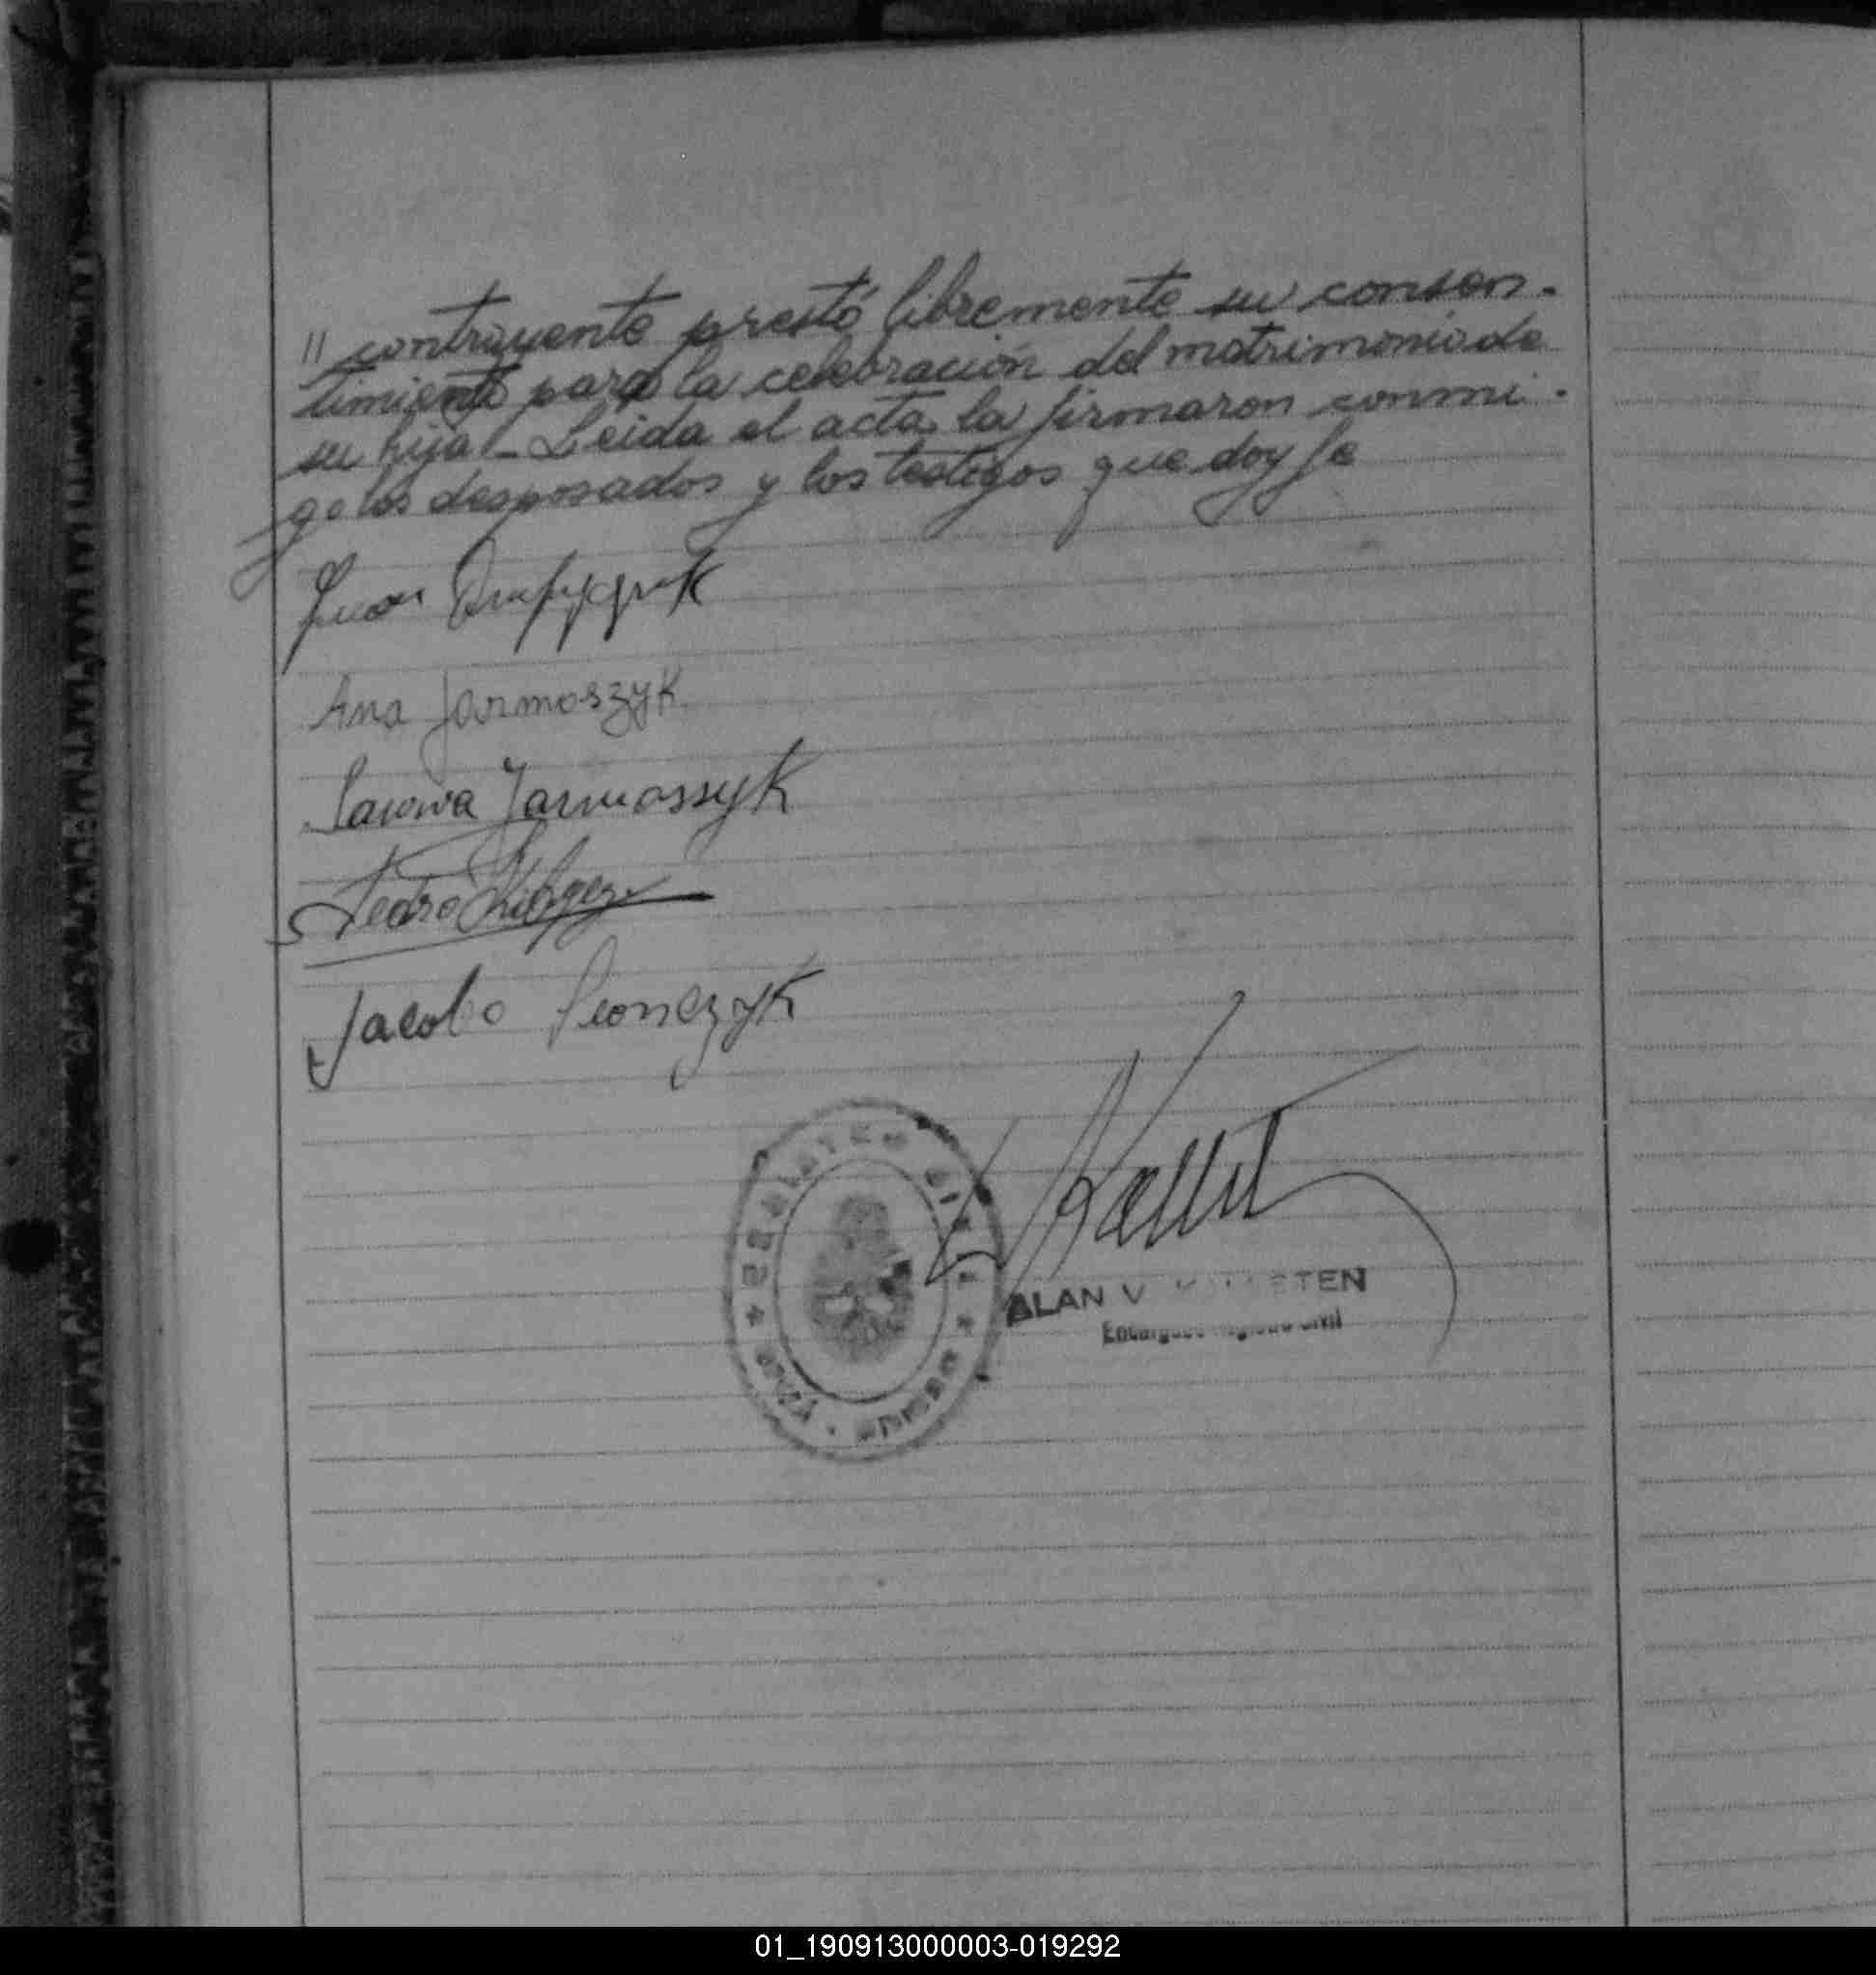 " contrayente prestó libremente su consen-
timiento para la celebración del matrimonio de
su hija - Leida el acta la firmaron conmi-
go los desposados y los testigos que doy fe
Juan
Ana Jarmoszyk
Jarmossyk
Pedro
Jacobo
ALAN V
Registro Civil
01_190913000003-019292